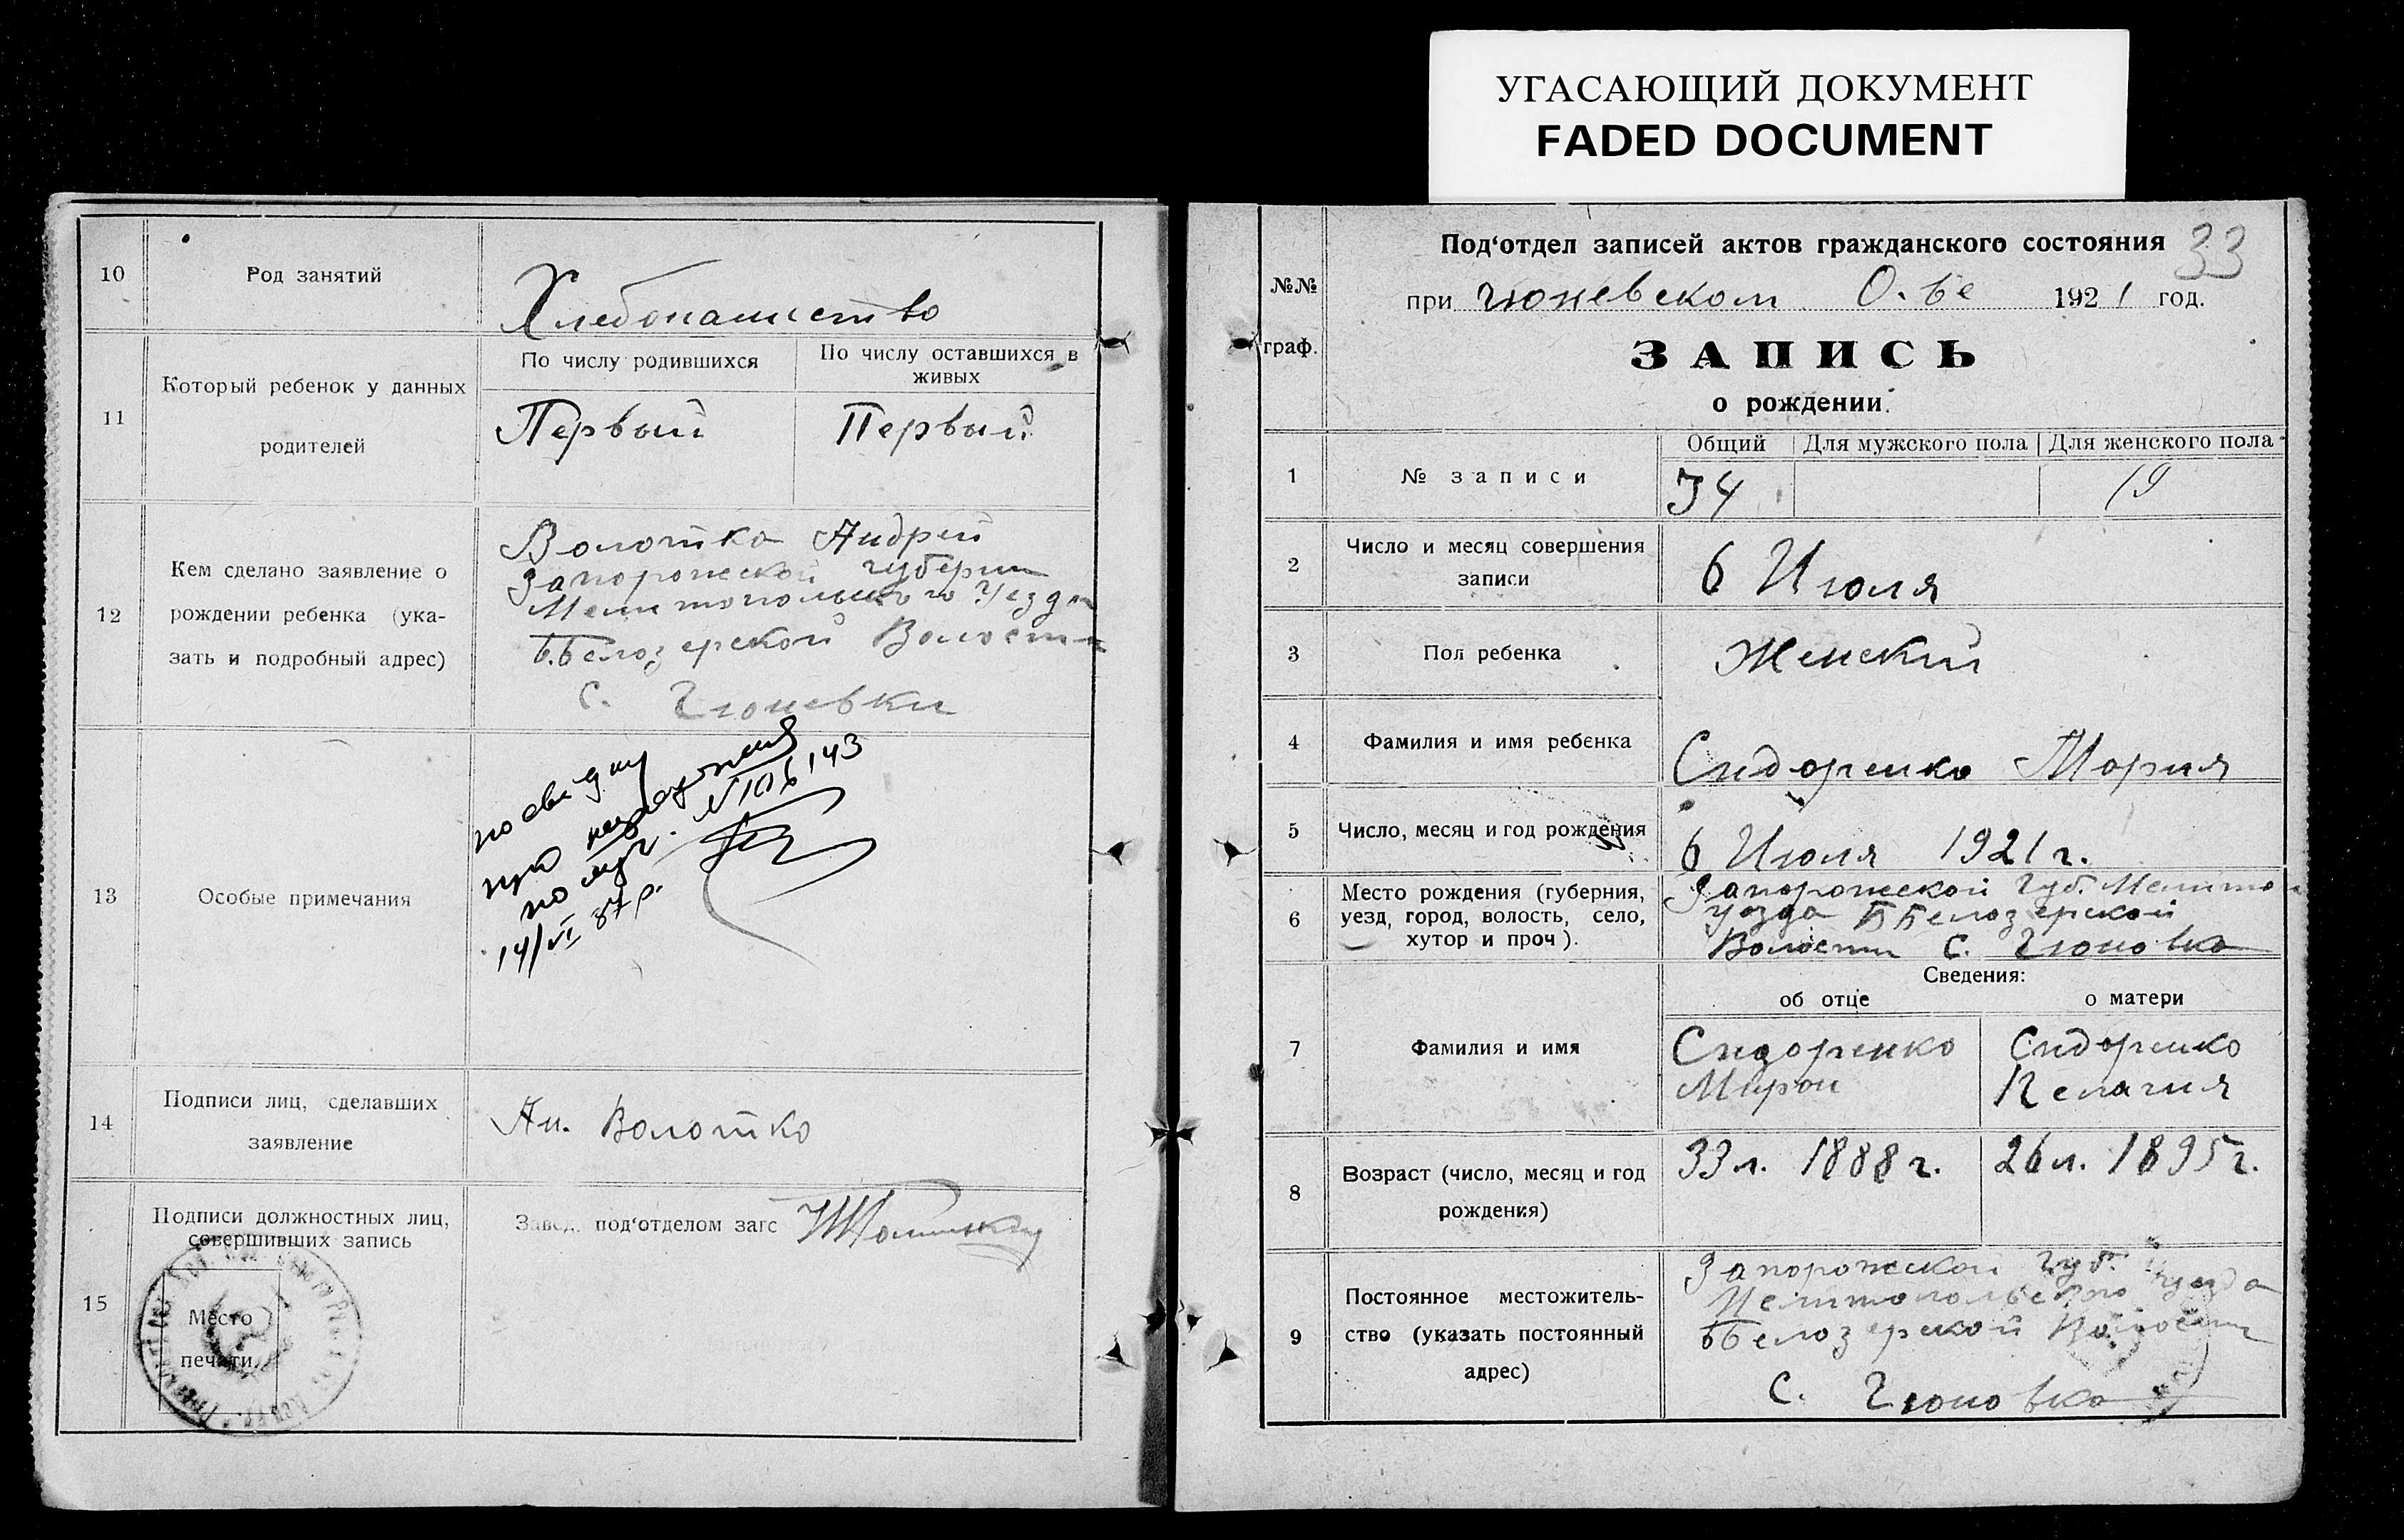 УГАСАЮЩИЙ ДОКУМЕНТ
FADED DOCUMENT
10
Род занятий
Хлебопашество
11
Который ребенок у данных
родителей
По числу родившихся
По числу оставшихся в
живых
Первый
Первый
12
Кем сделано заявление о
рождении ребенка (ука-
зать и подробный адрес)
Волотко Андрей
Запорожской губерни
Мелитопольского Уезда
Б.Белозерской Волости
С. Гюневки
13
Особые примечания
№ 106143
14/VI 87р.
14
Подписи лиц, сделавших
заявление
Ан. Волотко
15
Подписи должностных лиц,
совершивших запись
Место
печати.
Завед. под‘отделом загс
33
№№
граф.
Под‘отдел записей актов гражданского состояния
при Гюневском 1921 год.
ЗАПИСЬ
о рождении.
1
№ записи
Общий
Для мужского пола
Для женского пола
34
19
2
Число и месяц совершения
записи
6 Июля
3
Пол ребенка
Женский
4
Фамилия и имя ребенка
Сидоренко Мария
5
Число, месяц и год рождения
6 Июля 1921 г.
6
Место рождения (губерния,
уезд, город, волость, село,
хутор и проч).
Запорожской Губ. Мелитоп
уезда ББелозерской
Волости С. Гюновка
Сведения:
об отце
о матери
7
Фамилия и имя
Сидоренко
Мирон
Сидоренко
Пелагия
8
Возраст (число, месяц и год
рождения)
33 л. 1888 г.
26 л. 1895 г.
9
Постоянное местожитель-
ство (указать постоянный
адрес)
Запорожской Губ.
Мелитопольского уезда
ББелозерской Волости
С. Гюновка